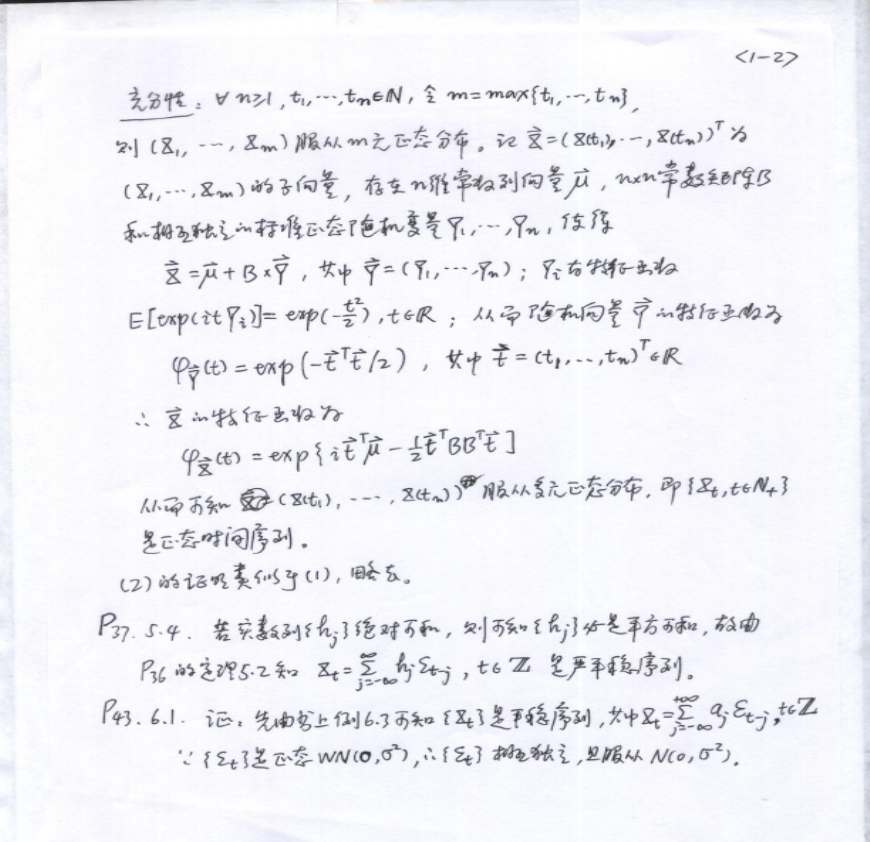 <1-2>
充分性: ∀ n≥1, t₁, ⋯, tₙ∈ℕ, 令 m=max{t₁, ⋯, tₙ},
则 (X₁, ⋯, Xₘ) 服从 m 元正态分布。记 X⃗=(X(t₁), ⋯, X(tₙ))ᵀ 为
(X₁, ⋯, Xₘ) 的子向量, 存在 n 维常数列向量 μ⃗, n×n 常数矩阵 B
和相互独立的标准正态随机变量 Y₁, ⋯, Yₙ, 使得
X⃗=μ⃗+B×Y⃗, 其中 Y⃗=(Y₁, ⋯, Yₙ); Yᵢ 有特征函数
E[exp(itYᵢ)]=exp(-t²/2), t∈R; 从而随机向量 Y⃗ 的特征函数为
φ_Y⃗(t)=exp(-t⃗ᵀt⃗/2), 其中 t⃗=(t₁, ⋯, tₙ)ᵀ∈R
∴ X⃗ 的特征函数为
φ_X⃗(t)=exp{it⃗ᵀμ⃗-½t⃗ᵀBBᵀt⃗]
从而可知 (X(t₁), ⋯, X(tₙ)) 服从多元正态分布, 即 {Xₜ, t∈N₊}
是正态时间序列。
(2) 的证明类似于 (1), 略去。
P₃₇. 5.4. 若实数列{hⱼ}绝对可和, 则可知{hⱼ}必是平方可和, 故由
P₃₆ 的定理5.2知 Xₜ=∑_{j=-∞}^{∞} hⱼε_{t-j}, t∈ℤ 是严平稳序列。
P₄₃. 6.1. 证: 先由书上例6.3可知{Xₜ}是平稳序列, 其中Xₜ=∑_{j=-∞}^{+∞} aⱼε_{t-j}, t∈ℤ
∵ {εₜ}是正态 WN(0,σ²), ∴{εₜ} 相互独立, 且服从 N(0,σ²).